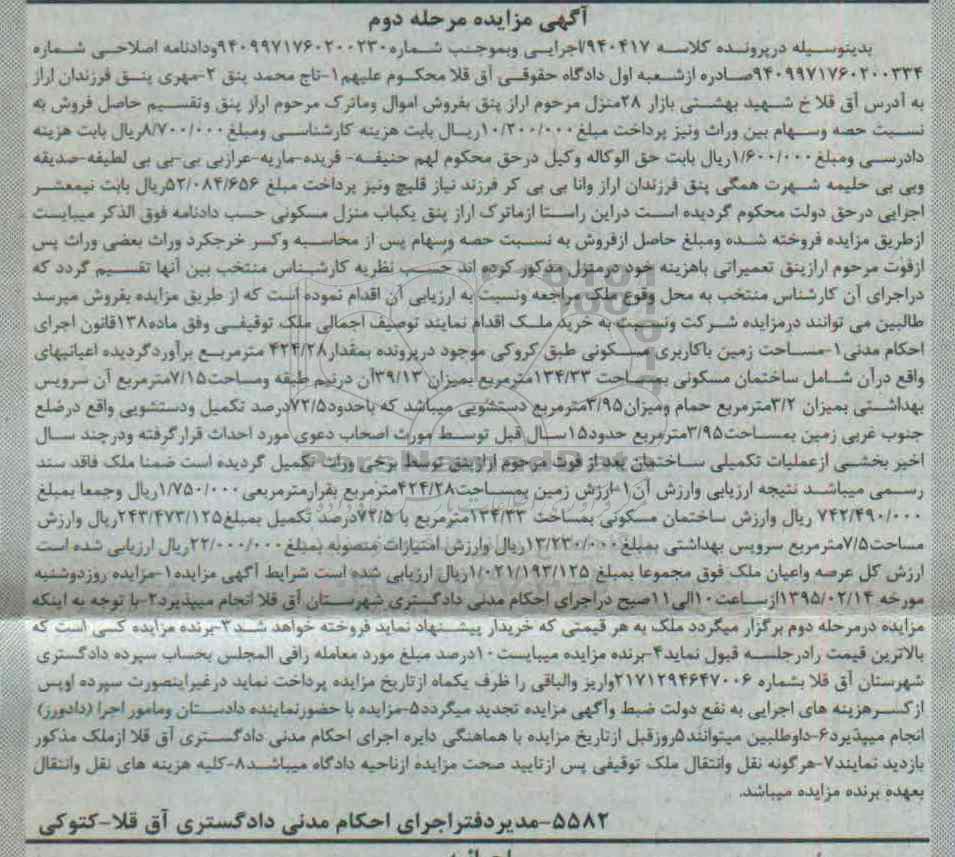 آگهی مزایده مرحله دوم
بدینوسیله درپرونده کلاسه ۹۴۰۴۱۷/اجرایی وبموجب شماره۹۴۰۹۹۷۱۷۶۰۲۰۰۲۳۰ودادنامه اصلاحی شماره
۹۴۰۹۹۷۱۷۶۰۲۰۰۳۳۴صادره ازشعبه اول دادگاه حقوقی آق قلا محکوم علیهم۱-تاج محمد پنق ۲-مهری پنق فرزندان اراز
به آدرس آق قلا خ شهید بهشتی بازار ۲۸منزل مرحوم اراز پنق بفروش اموال وماترک مرحوم اراز پنق وتقسیم حاصل فروش به
نسبت حصه وسهام بین وراث ونیز پرداخت مبلغ ۱۰/۲۰۰/۰۰۰ریال بابت هزینه کارشناسی ومبلغ۸/۷۰۰/۰۰۰ریال بابت هزینه
دادرسی ومبلغ ۱/۶۰۰/۰۰۰ریال بابت حق الوکاله وکیل درحق محکوم لهم حنیفه- فریده-ماریه-عرازبی بی-بی بی لطیفه-صدیقه
وبی بی حلیمه شهرت همگی پنق فرزندان اراز وانا بی بی کر فرزند نیاز قلیچ ونیز پرداخت مبلغ ۵۲/۰۸۴/۶۵۶ریال بابت نیمعشر
اجرایی درحق دولت محکوم گردیده است دراین راستا ازماترک اراز پنق یکباب منزل مسکونی حسب دادنامه فوق الذکر میبایست
ازطریق مزایده فروخته شده ومبلغ حاصل ازفروش به نسبت حصه وسهام پس از محاسبه وکسر خرجکرد وراث بعضی وراث پس
ازفوت مرحوم ارازپنق تعمیراتی باهزینه خود درمنزل مذکور کرده اند حسب نظریه کارشناس منتخب بین آنها تقسیم گردد که
دراجرای آن کارشناس منتخب به محل وقوع ملک مراجعه ونسبت به ارزیابی آن اقدام نموده است که از طریق مزایده بفروش میرسد
طالبین می توانند درمزایده شرکت ونسبت به خرید ملک اقدام نمایند توصیف اجمالی ملک توقیفی وفق ماده۱۳۸قانون اجرای
احکام مدنی۱-مساحت زمین باکاربری مسکونی طبق کروکی موجود درپرونده بمقدار۴۲۴/۲۸ مترمربع برآوردگردیده اعیانیهای
واقع درآن شامل ساختمان مسکونی بمساحت ۱۳۴/۳۳مترمربع بمیزان ۳۹/۱۳آن درنیم طبقه ومساحت۷/۱۵مترمربع آن سرویس
بهداشتی بمیزان ۳/۲مترمربع حمام ومیزان۳/۹۵مترمربع دستشویی میباشد که باحدود۷۲/۵درصد تکمیل ودستشویی واقع درضلع
جنوب غربی زمین بمساحت۳/۹۵مترمربع حدود۱۵سال قبل توسط مورث اصحاب دعوی مورد احداث قرارگرفته ودرچند سال
اخیر بخشی ازعملیات تکمیلی ساختمان بعد از فوت مرحوم ارازپنق توسط برخی وراث تکمیل گردیده است ضمنا ملک فاقد سند
رسمی میباشد نتیجه ارزیابی وارزش آن۱-ارزش زمین بمساحت۴۲۴/۲۸مترمربع بقرارمترمربعی۱/۷۵۰/۰۰۰ریال وجمعا بمبلغ
۷۴۲/۴۹۰/۰۰۰ ریال وارزش ساختمان مسکونی بمساحت ۱۳۴/۳۳مترمربع با ۷۲/۵درصد تکمیل بمبلغ۲۴۳/۴۷۳/۱۲۵ریال وارزش
مساحت۷/۵مترمربع سرویس بهداشتی بمبلغ۱۳/۲۳۰/۰۰۰ریال وارزش امتیازات منصوبه بمبلغ۲۲/۰۰۰/۰۰۰ریال ارزیابی شده است
ارزش کل عرصه واعیان ملک فوق مجموعا بمبلغ ۱/۰۲۱/۱۹۳/۱۲۵ریال ارزیابی شده است شرایط آگهی مزایده۱-مزایده روزدوشنبه
مورخه ۱۳۹۵/۰۲/۱۴ازساعت۱۰الی۱۱صبح دراجرای احکام مدنی دادگستری شهرستان آق قلا انجام میپذیرد۲-با توجه به اینکه
مزایده درمرحله دوم برگزار میگردد ملک به هر قیمتی که خریدار پیشنهاد نماید فروخته خواهد شد۳-برنده مزایده کسی است که
بالاترین قیمت رادرجلسه قبول نماید۴-برنده مزایده میبایست۱۰درصد مبلغ مورد معامله رافی المجلس بحساب سپرده دادگستری
شهرستان آق قلا بشماره ۲۱۷۱۲۹۴۶۴۷۰۰۶واریز والباقی را ظرف یکماه ازتاریخ مزایده پرداخت نماید درغیراینصورت سپرده اوپس
ازکسرهزینه های اجرایی به نفع دولت ضبط وآگهی مزایده تجدید میگردد۵-مزایده با حضورنماینده دادستان ومامور اجرا (دادورز)
انجام میپذیرد۶-داوطلبین میتوانند۵روزقبل ازتاریخ مزایده با هماهنگی دایره اجرای احکام مدنی دادگستری آق قلا ازملک مذکور
بازدید نمایند۷-هرگونه نقل وانتقال ملک توقیفی پس ازتایید صحت مزایده ازناحیه دادگاه میباشد۸-کلیه هزینه های نقل وانتقال
بعهده برنده مزایده میباشد.
۵۵۸۲-مدیردفتراجرای احکام مدنی دادگستری آق قلا-کتوکی